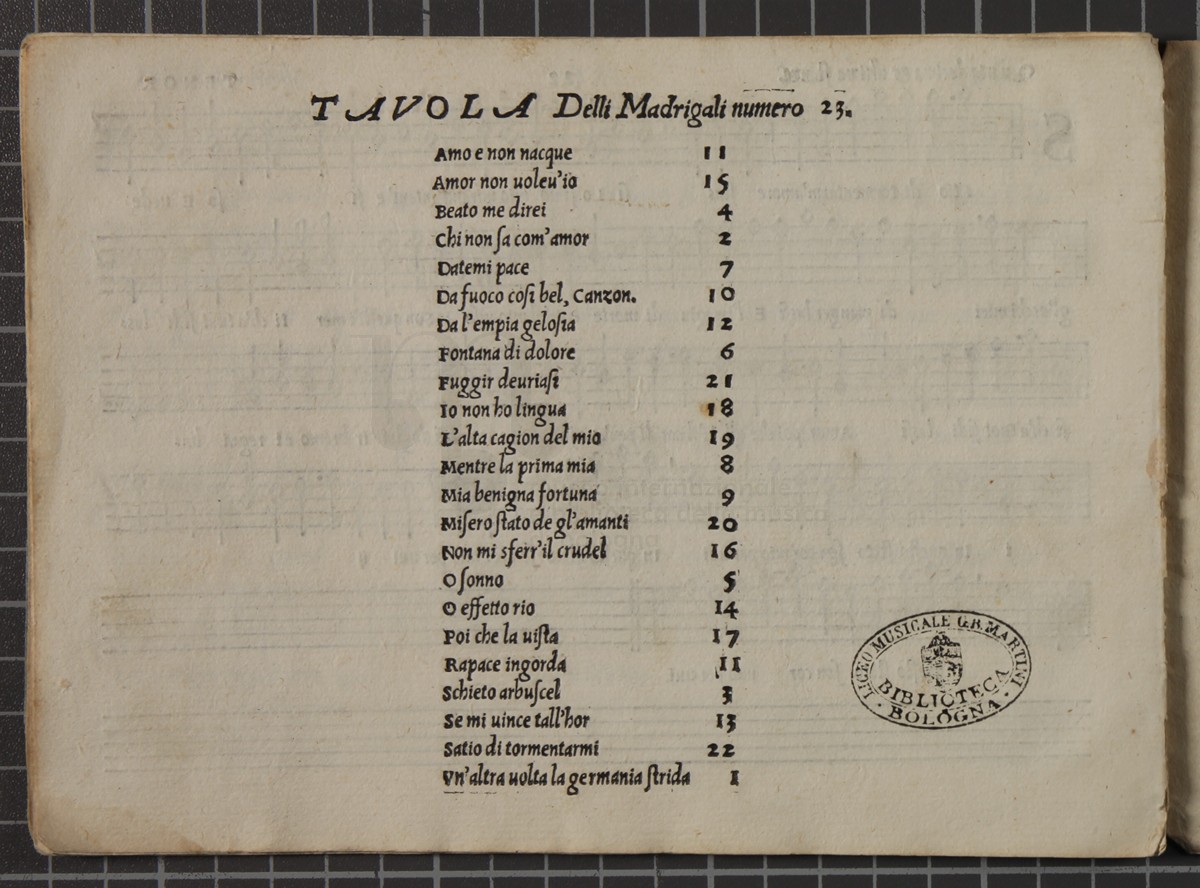 TAVOLA Delli Madrigali numero 23.
Amo e non nacque 11
Amor non uoleu'io 15
Beato me direi 4
Chi non ſa com'amor 2
Datemi pace 7
Da fuoco coſi bel, Canzon. 10
Da l'empia geloſia 12
Fontana di dolore 6
Fuggir deuriaſi 21
Io non ho lingua 18
L'alta cagion del mio 19
Mentre la prima mia 8
Mia benigna fortuna 9
Miſero ſtato de gl'amanti 20
Non mi sferr'il crudel 16
O ſonno 5
O effetto rio 14
Poi che la uiſta 17
Rapace ingorda 11
Schieto arbuſcel 3
Se mi uince tall'hor 13
Satio di tormentarmi 22
Vn'altra uolta la germania ſtrida 1
LICEO MUSICALE G.B. MARTINI
BIBLIOTECA
· BOLOGNA ·